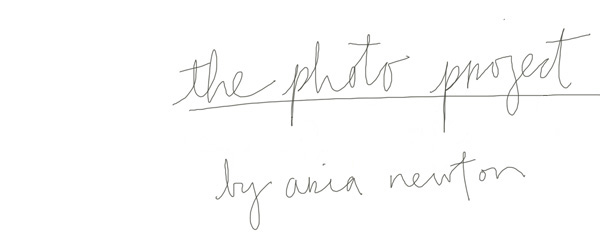 the photo project
by asia newton